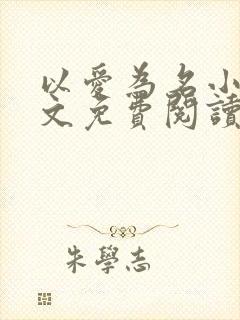 以愛為名小
文免費閱讀
朱學志